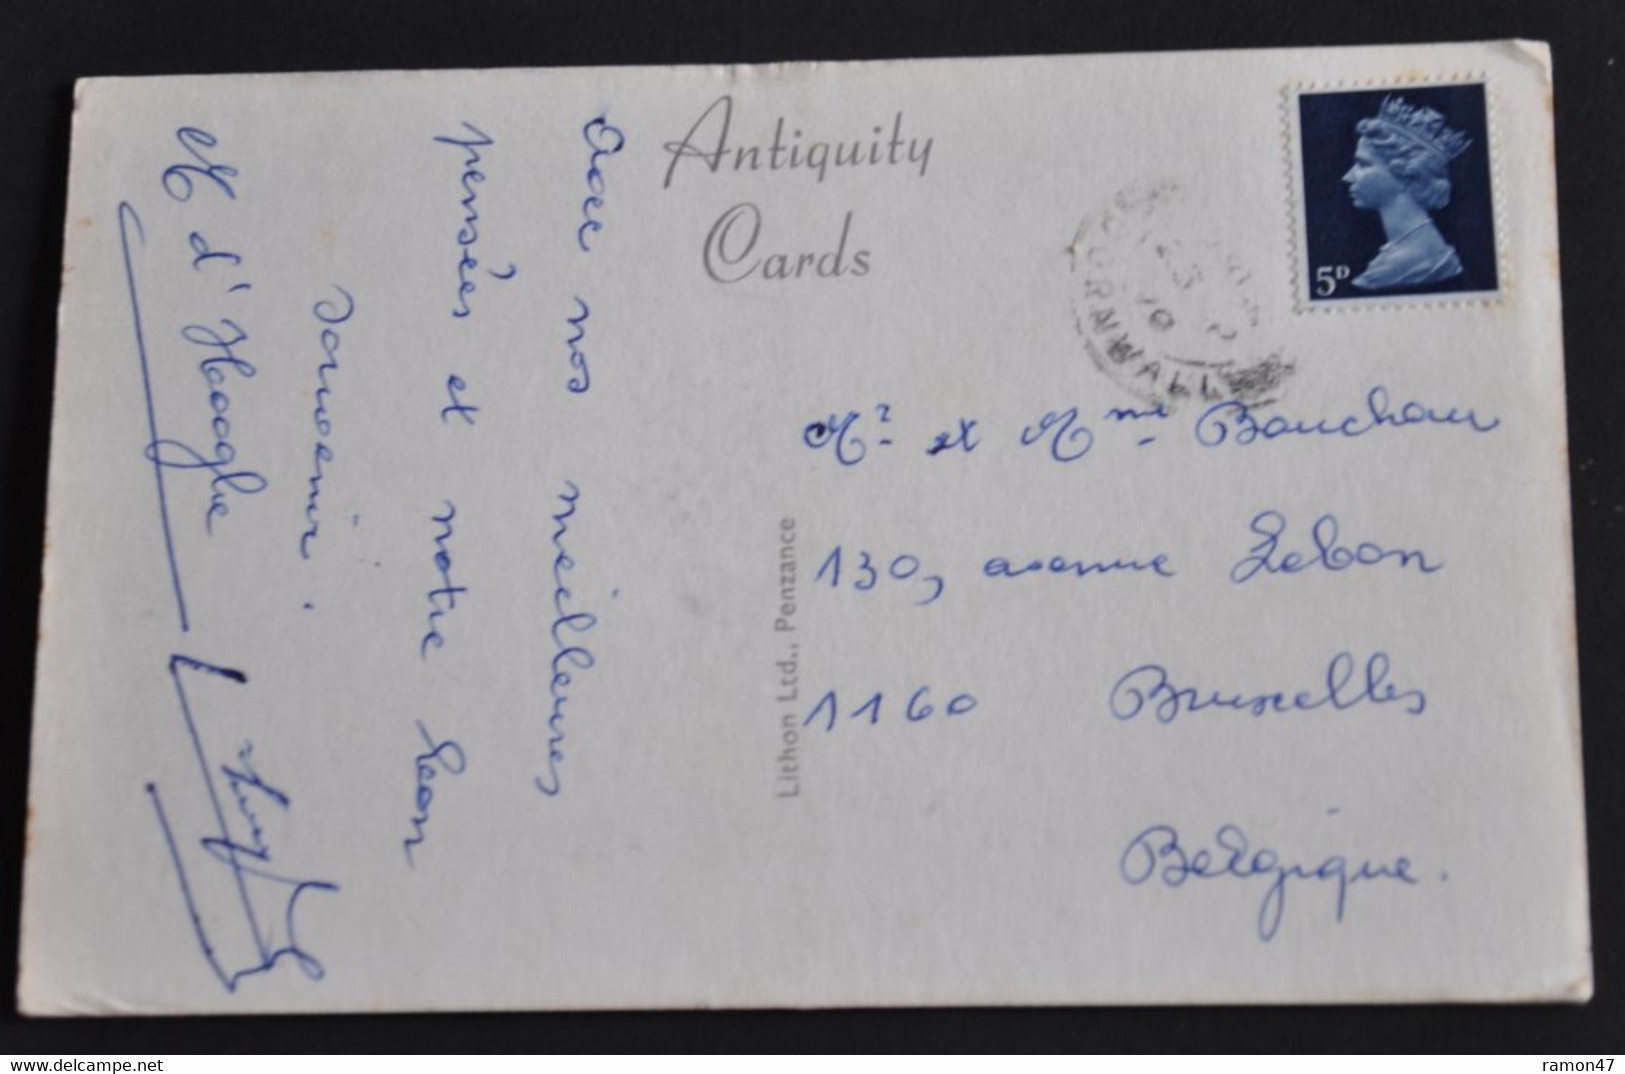 Antiquity
Cards
Avec nos meilleures
pensées et notre bon
souvenir.
M d'Hooghe
Lithon Ltd., Penzance
5D
CORNWALL
Mr et Mme Bauchau
130, avenue Lebon
1160 Bruxelles
Belgique.
ramon47